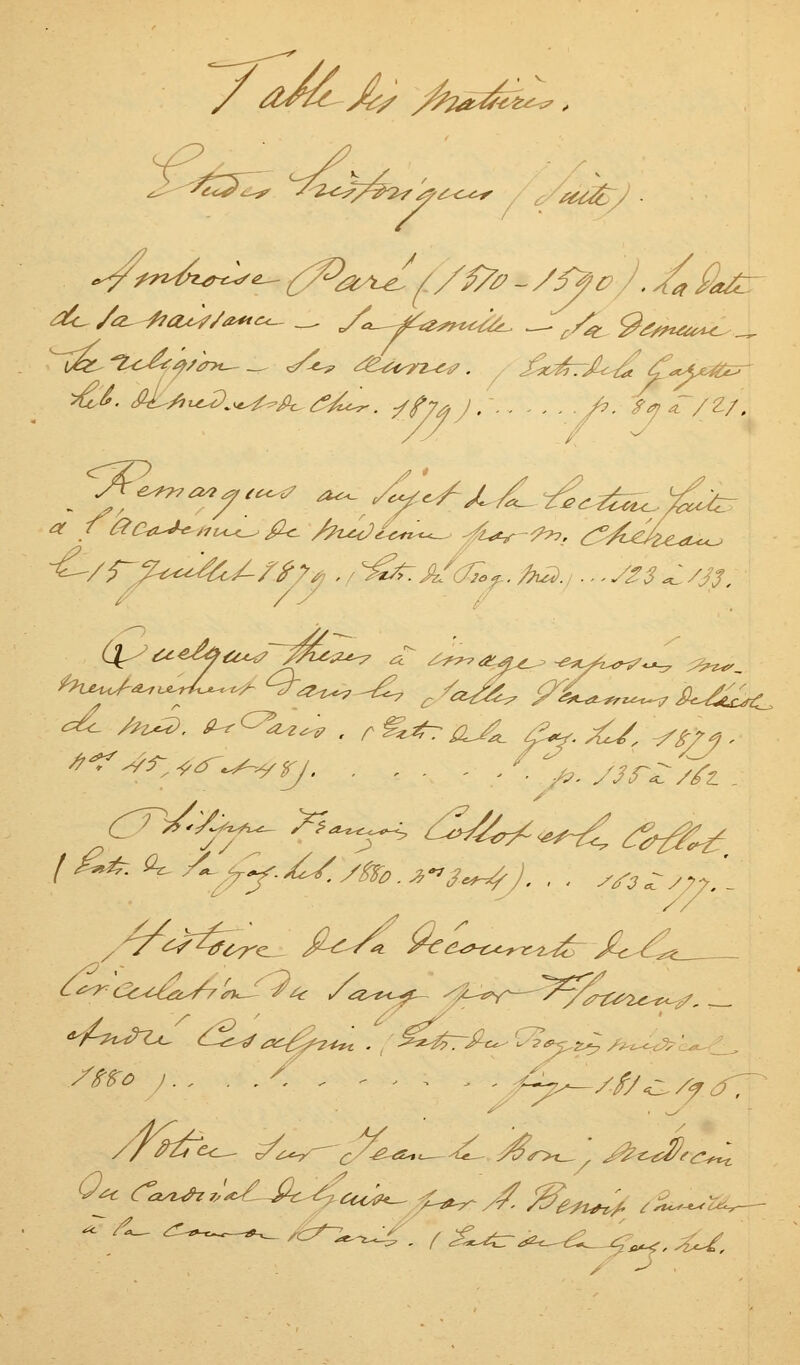 Table des Matières.
Etudes historiques (Suite).
Ambroise Paré (1510-1590). La Date
de la naissance — Sa famille — Sa Demeure —
Sa religion — Ses Œuvres. (Extr. de la Gazette
heb. de Med. et de Chir. 1879). . . . . . . p. 89 à 121.
Remarques au Sujet de la Lecture faite
à l'Académie de Médecine par M. Chéreau
le 15 Juillet 1879. (Extr. du Prog. Med.) . . . 123 à 133.
Quelques Thèses à image exposées mo-
mentanément dans les Salles d'examens de l'école
de Méd. de Paris. (Extr. de la Gaz. heb. 1879.
nos 45, 46 et 48). . . . . . . . p. 135 à 162.
Philippe François Collot et les Collot.
(Extr. de la Gaz. heb. 1880. nos 3 et 4). . . 163 à 177. -
Histoire de la découverte de la
Circulation du Sang par Flourens. —
André Césalpin. (Extr. du Progrès médical
1880). . . . . . . . . . . page 181 à 196.
Notice sur Jean le Bon, médecin
du Cardinal de Guise par A. Benoit, Conseiller
à la cour de Paris. (Extr. de la Gaz. heb.